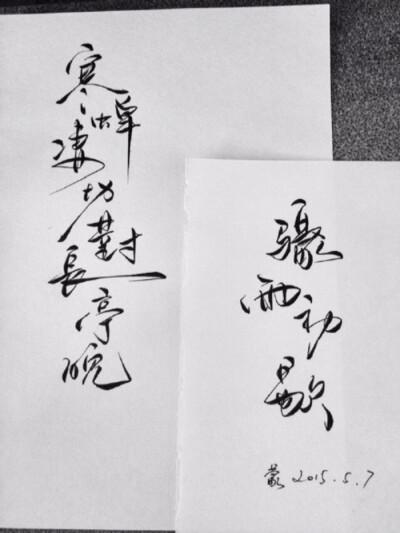 寒蝉凄切對長亭晚
骤雨初歇
2015.5.7